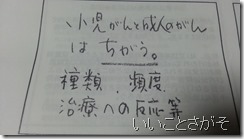 小児がんと成人のがん
は ちがう。
種類、頻度、
治療への反応等
いいことさがそ